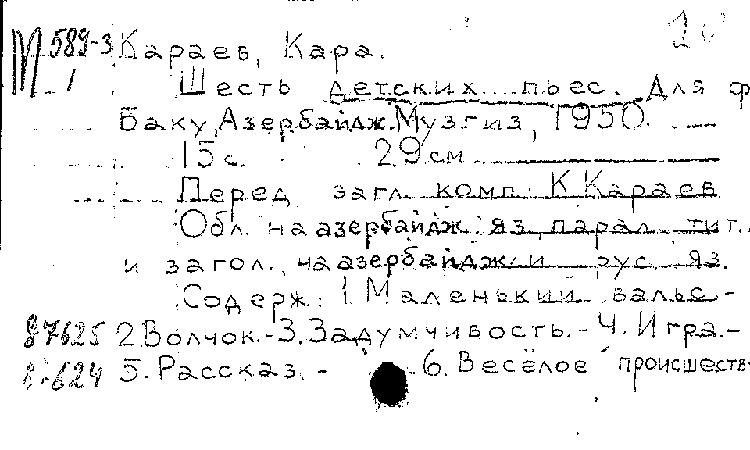 М 589-3 Караев, Кара.
1 Шесть детских пьес. Для ф
Баку, Азербайдж. Музгиз, 1950.
15 с. 29 см
Перед загл. комп. К. Караев
Обл. на азербайдж. яз., парал. тит.
и загол. на азербайдж. и рус. яз.
Содерж.: 1. Маленький вальс -
87625 2. Волчок. - 3. Задумчивость. - 4. Игра. -
5. Рассказ. - 6. Весёлое происшеств